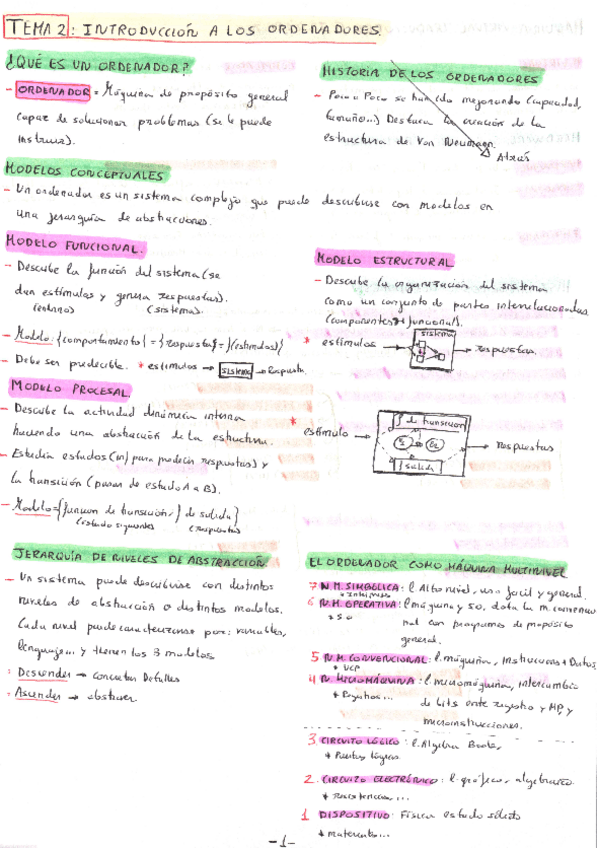 TEMA 2: INTRODUCCIÓN A LOS ORDENADORES
¿QUÉ ES UN ORDENADOR?
- ORDENADOR = Máquina de propósito general
capaz de solucionar problemas (se le puede
instruir).
HISTORIA DE LOS ORDENADORES
- Poco a Poco se han ido mejorando (capacidad,
tamaño...) Destaca la creación de la
estructura de Von Neumann.
Atrás
MODELOS CONCEPTUALES
- Un ordenador es un sistema complejo que puede describirse con modelos en
una jerarquía de abstracciones.
MODELO FUNCIONAL.
- Describe la función del sistema (se
dan estímulos y genera respuestas).
(entorno) (sistema)
- Modelo: {comportamiento} = {respuestas = f(estímulos)}
- Debe ser predecible. * estímulos → sistema → Respuesta
MODELO ESTRUCTURAL
- Describe la organización del sistema
como un conjunto de partes interrelacionadas
(componentes + funcional).
* estímulos → sistema → respuestas
MODELO PROCESAL
- Describe la actividad dinámica interna
haciendo una abstracción de la estructura.
- Estudia estados (in) para predecir respuestas) y
la transición (pasar de estado A a B).
- Modelo = {función de transición, f de salida}
(estado siguiente) (respuestas)
* estímulo → f de transición
E1 E2
f salida
→ Respuestas
JERARQUÍA DE NIVELES DE ABSTRACCIÓN
- Un sistema puede describirse con distintos
niveles de abstracción o distintos modelos.
Cada nivel puede caracterizarse por: variables,
lenguaje... y tienen los 3 modelos
: Descender → concretar detalles
: Ascender → abstraer.
EL ORDENADOR COMO MÁQUINA MULTINIVEL
7 N.M. SIMBÓLICA: l. Alto nivel, uso fácil y general.
6 N.M. OPERATIVA: l. máquina y SO, dota la m. convencio
+ S.O nal con programas de propósito
general.
5 N.M. CONVENCIONAL: l. máquina, Instrucciones + Datos,
+ UCP
4 N. MICROMÁQUINA: l. micromáquina, intercambio
+ Registros... de bits entre registro y MP, y
microinstrucciones.
3 CIRCUITO LÓGICO: l. Algebra Boole,
+ Puertas lógicas
2. CIRCUITO ELECTRÓNICO: l. gráfico, algebraico
+ resistencias, ...
1 DISPOSITIVO: Física estado sólido
+ materiales...
-1-